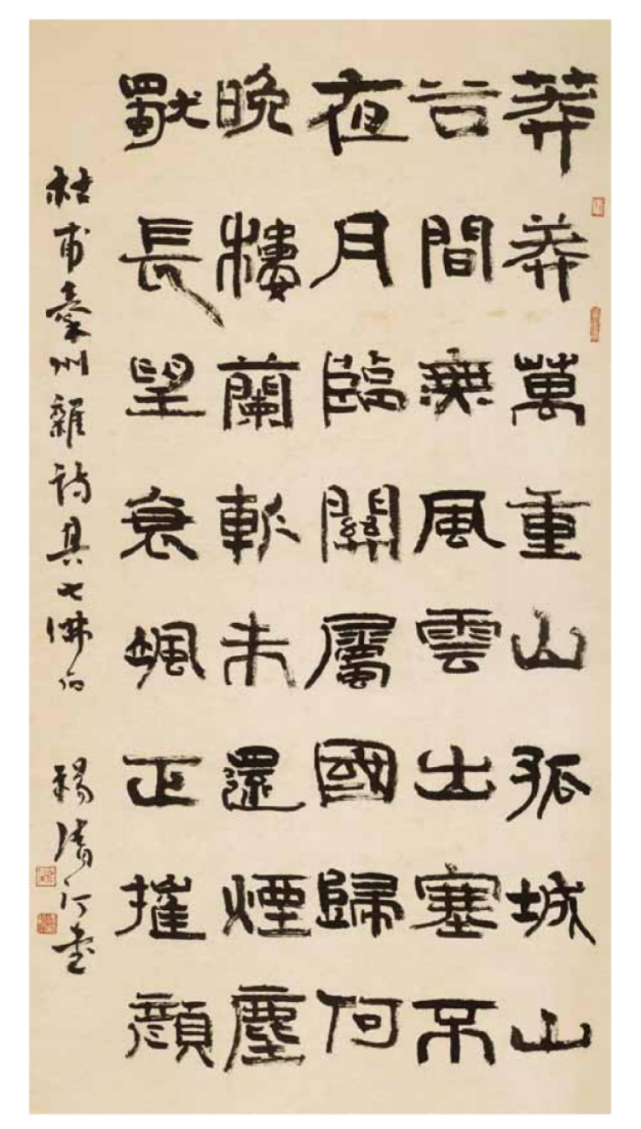 莽莽萬重山孤城山
谷間無風雲出塞不
夜月臨關屬國歸何
晚樓蘭斬未還煙塵
獨長望衰颯正摧顏
杜甫秦州雜詩其七